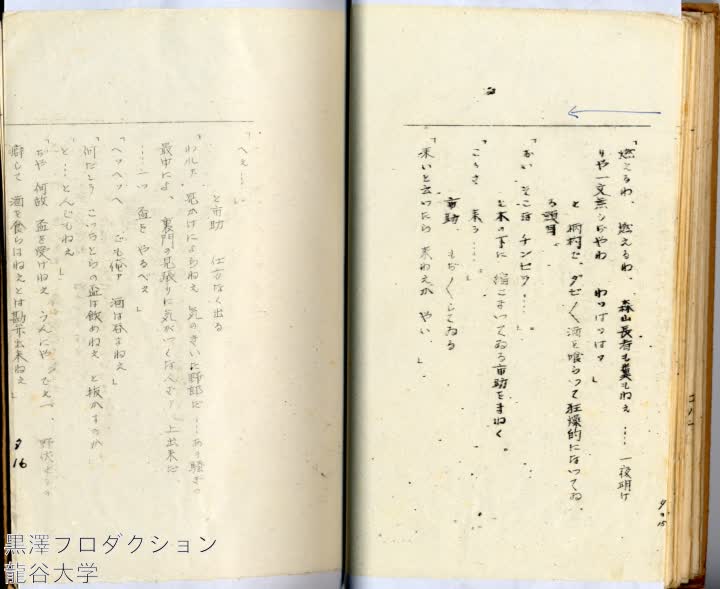 「燃えるわ、燃えるわ、森山長者も糞もねえ……一夜明け
りや一文無しぢやわ わつはつはつ
」
と 柄杓で、ガブ〱酒を喰らつて狂燥的になつてゐ
る頭目。
「おい、そこな チンピラ……」
と木の下に 縮こまつてゐる市助をまねく
「こつちさ 来う……」
市助、もぢ〱してゐる
「来いと云つたら 来ねえか やい」
9.15
「へえ……」
と市助 仕方なく出る
「われア 見かけによらねえ 気のきいた野郎だ……あの騒ぎの
最中によ、裏門の見張りに気がつくなんざア 上出来だ
……一つ 盃を やるべえ」
「ヘッヘッヘ でも俺ア 酒は呑まねえ」
「何だとう こつちとらの盃は飲めねえ と抜かすのか」
「と……とんでもねえ」
「ぢや 何故 盃を受けねえ うんにや でえ一、野伏せりの
癖して 酒を食らはねえとは勘弁出来ねえ」
9.16
黒澤プロダクション
龍谷大学